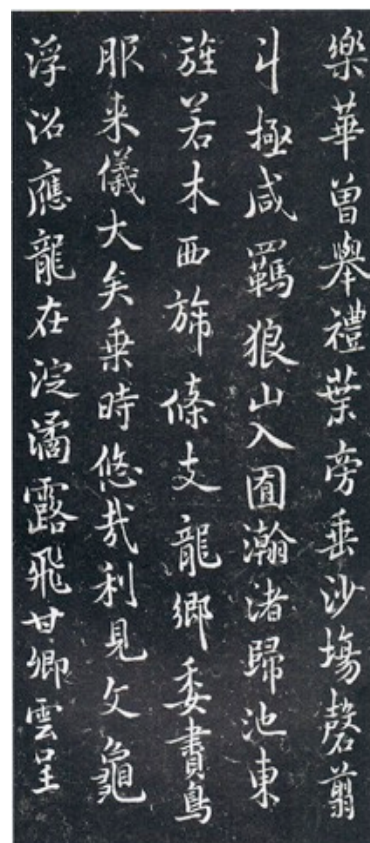 樂華曾舉禮葉旁垂沙場磬翦
斗極咸羈狼山入囿瀚渚歸池東
旌若木西旆條支龍鄉委賮鳥
服来儀大矣乗時悠哉利見文龜
浮沼應龍在淀潏露飛甘卿雲呈